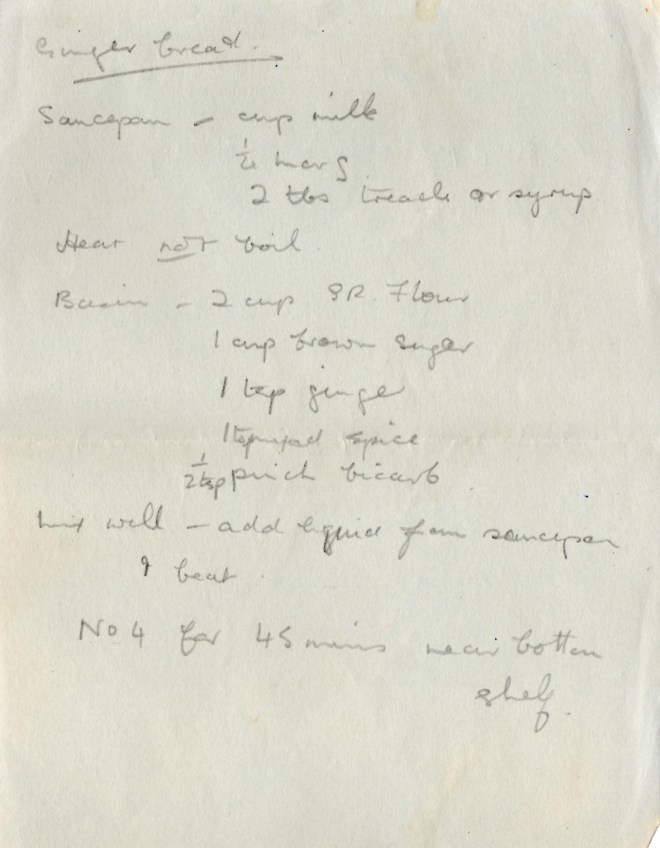 Ginger bread.
Saucepan - cup milk
¼ marg
2 tbs treacle or syrup
Heat not boil
Basin - 2 cup SR. Flour
1 cup brown suger
1 tsp ginger
1 tsp mixed spice
½ tsp pinch bicarb
Mix well - add liquid from saucepan
& beat
No 4 for 45 mins near bottom
shelf.